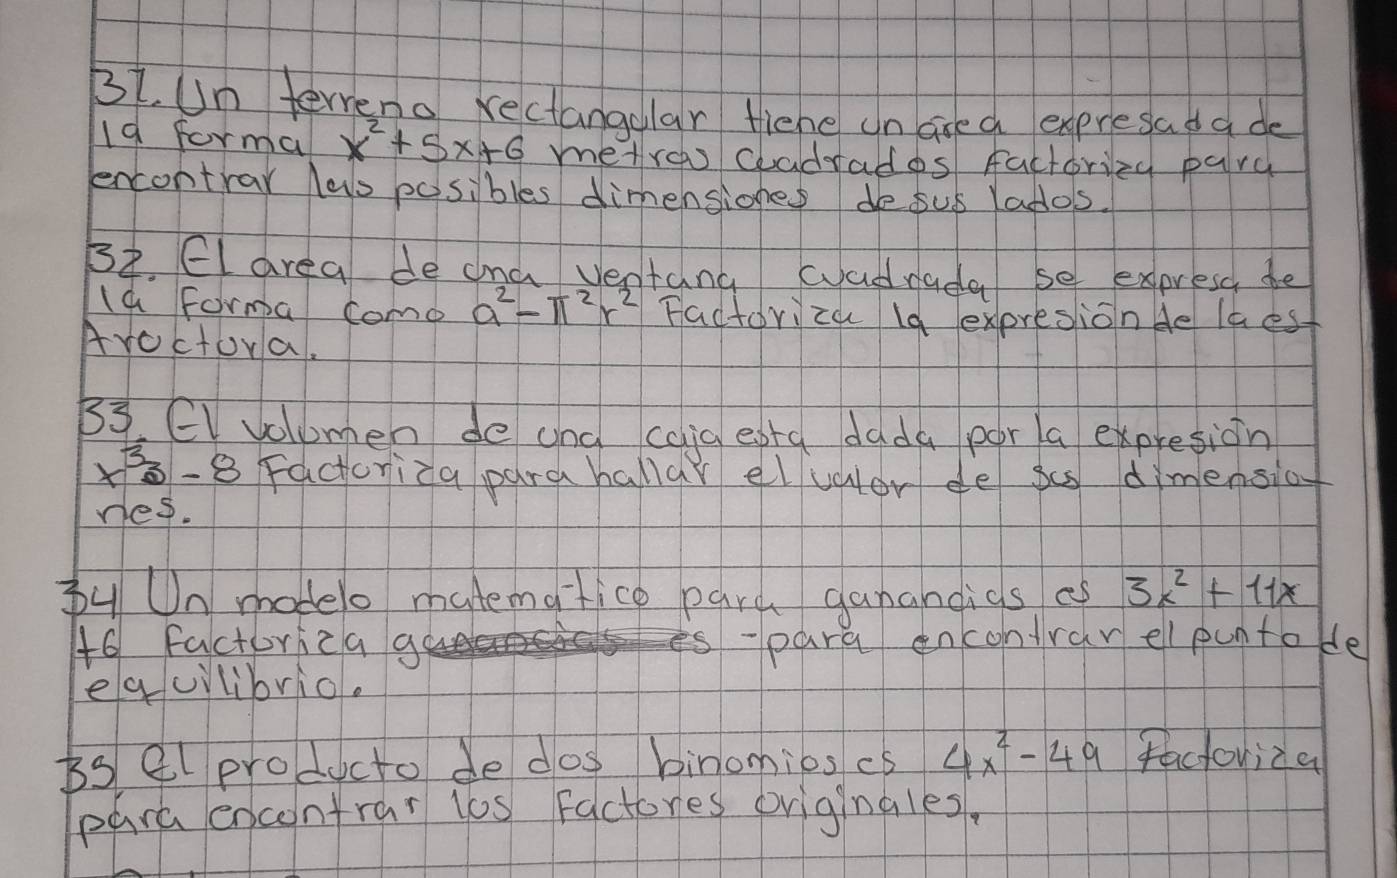 31. Un terreno rectangular tiene un area expresada de
la forma x²+5x+6 metros cuadrados factoriza para
encontrar las posibles dimensiones de sus lados.
32. El area de una ventana cuadrada se expresa de
la forma como a²-π²r² Factoriza la expresión de la es-
tructura.
33. El volumen de una caja esta dada por la expresión
x³-8 Factoriza para hallar el valor de sus dimensio-
nes.
34 Un modelo matematico para ganancias es 3x² + 11x
+6 factoriza para encontrar el punto de
equilibrio.
35 El producto de dos binomios es 4x²-49 Factoriza
para encontrar los Factores originales.